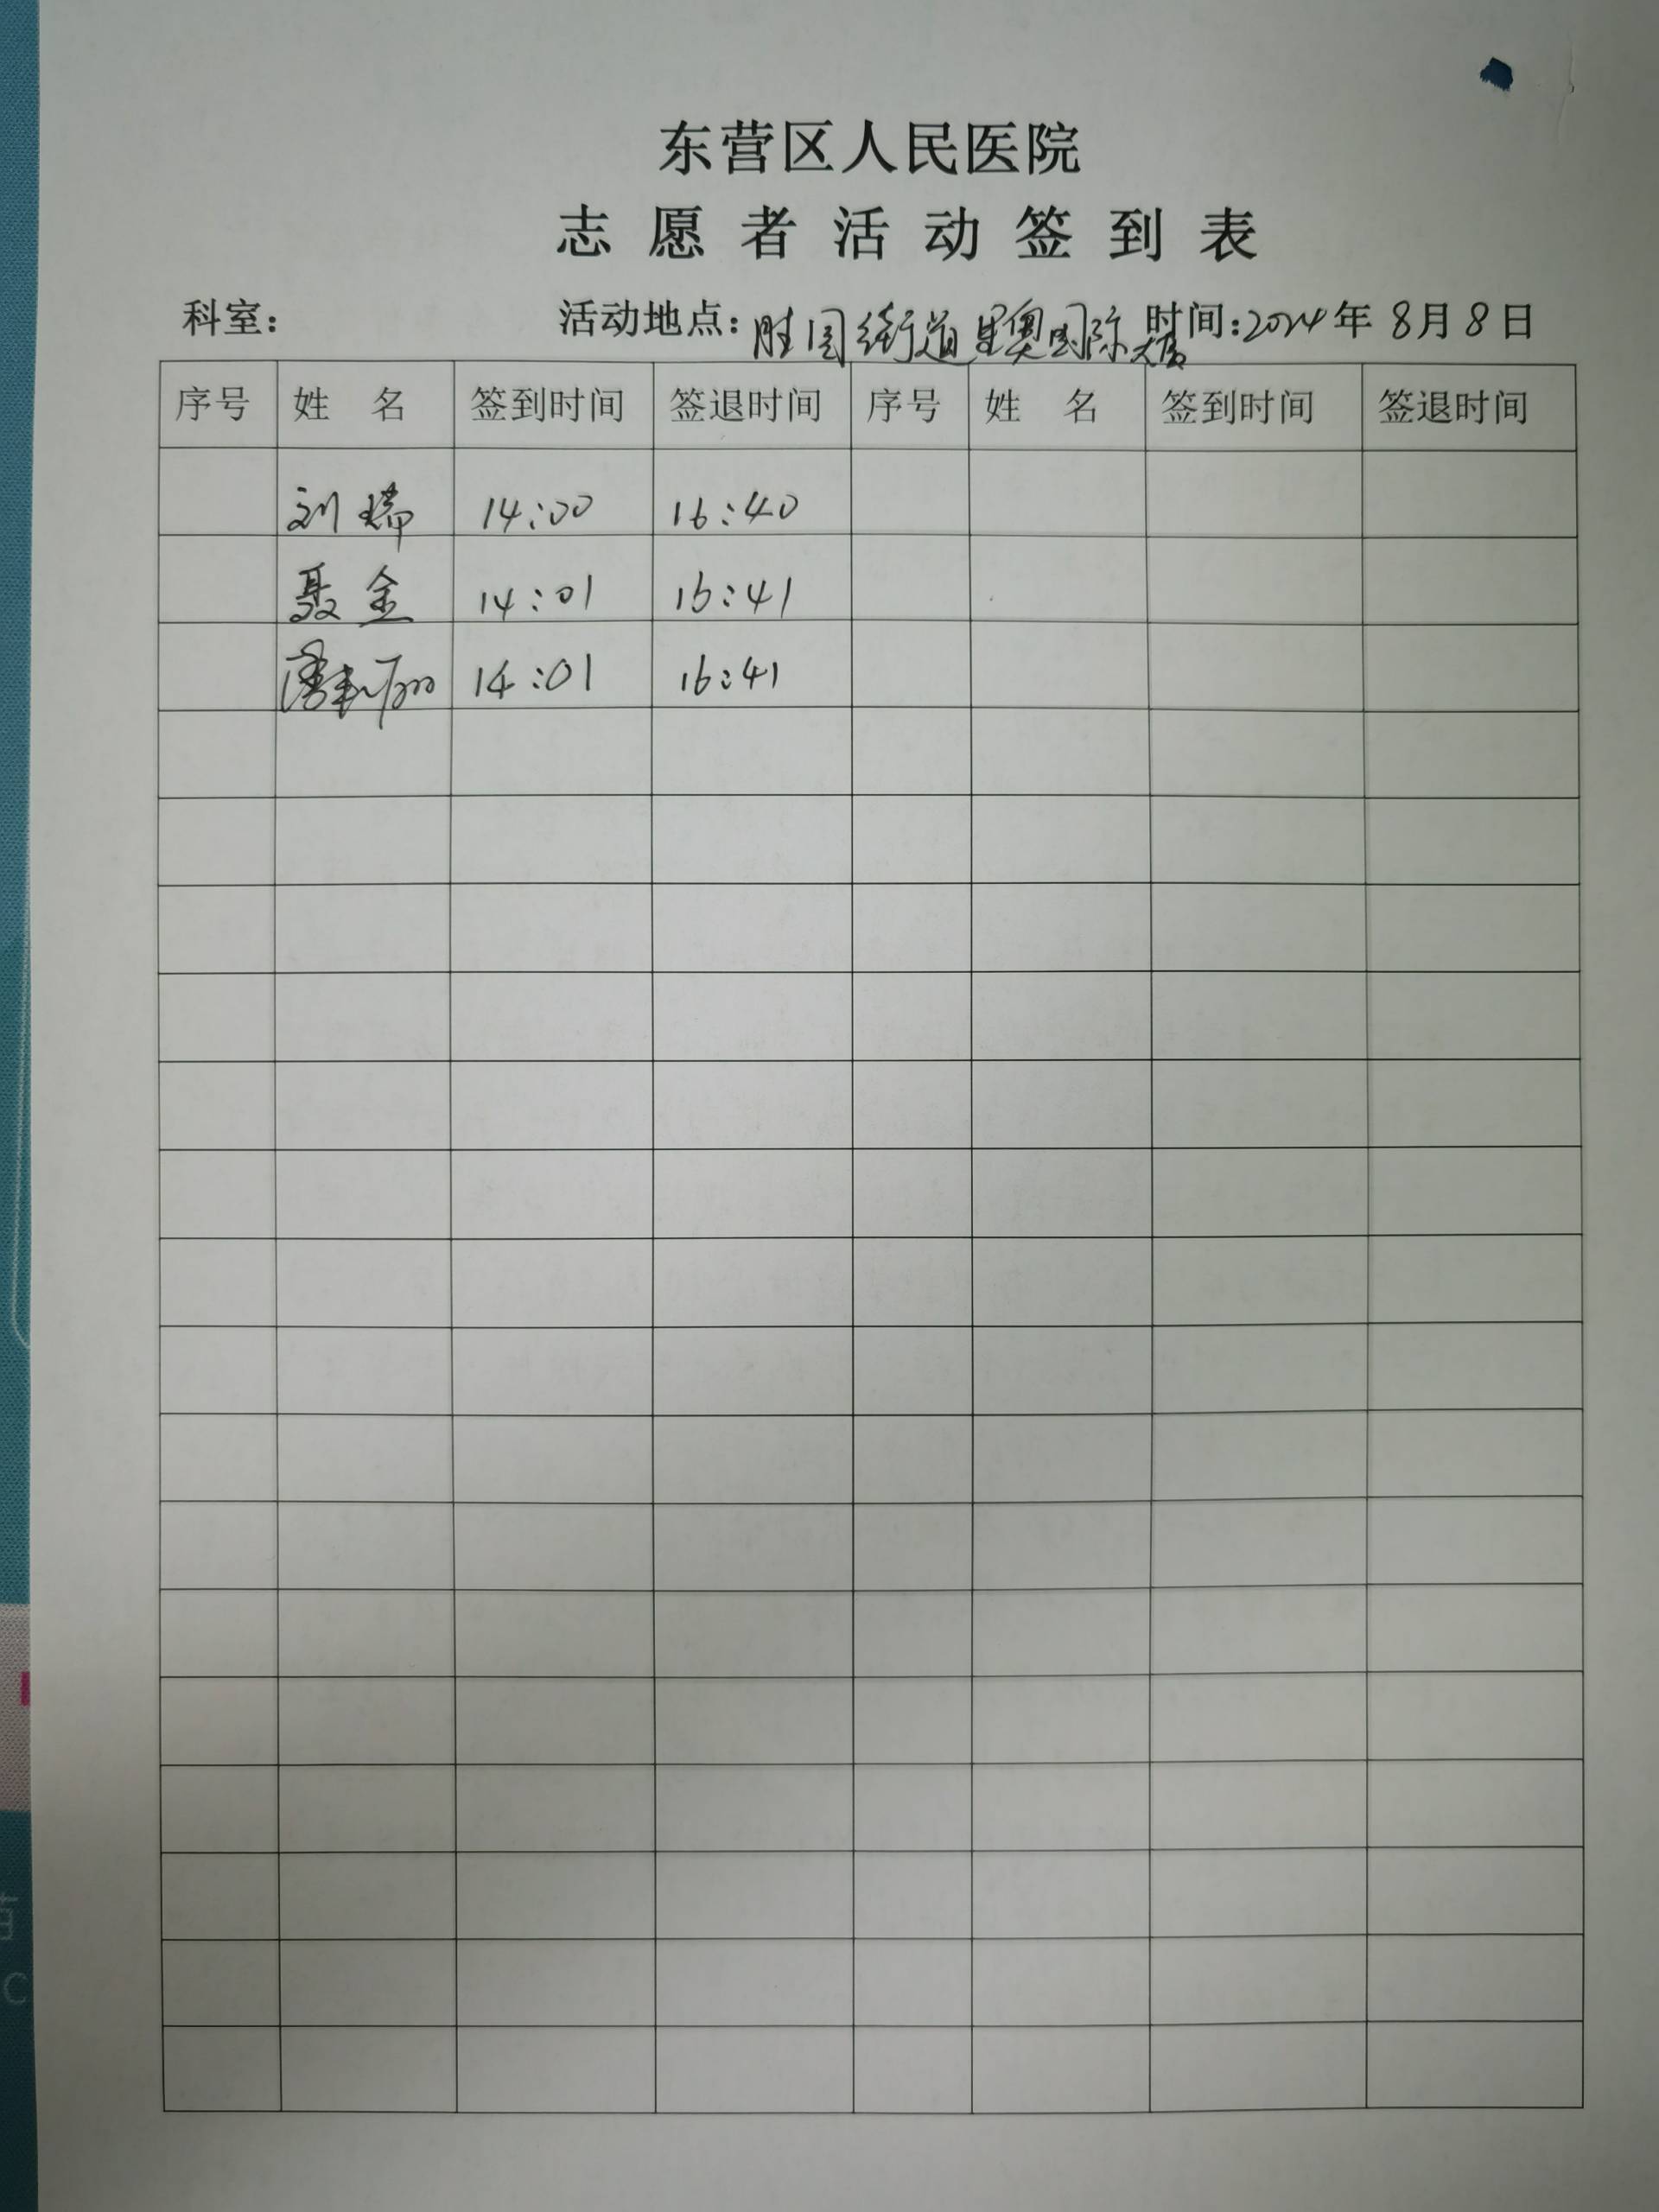 东营区人民医院
志愿者活动签到表
科室: 活动地点:胜园街道里奥国际 时间:2024年8月8日
序号 姓名 签到时间 签退时间 序号 姓名 签到时间 签退时间
刘瑞 14:00 16:40
聂金 14:01 16:41
14:01 16:41